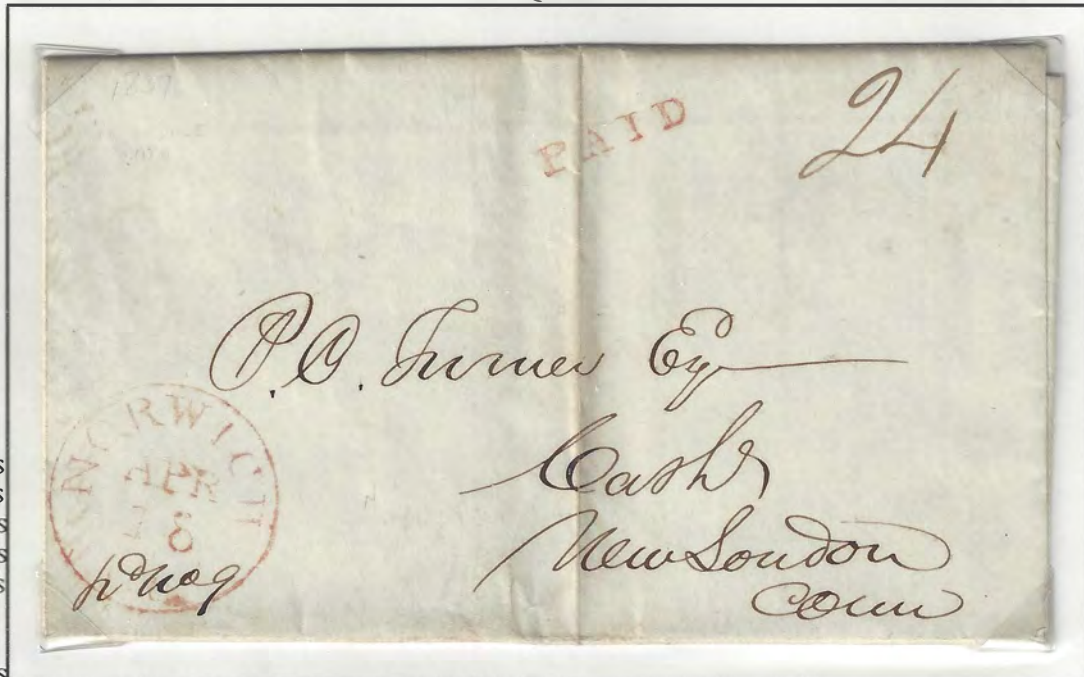 1837
PAID
24
P. C. Turner Esq
Cashr
New London
Conn
NORWICH
APR
8